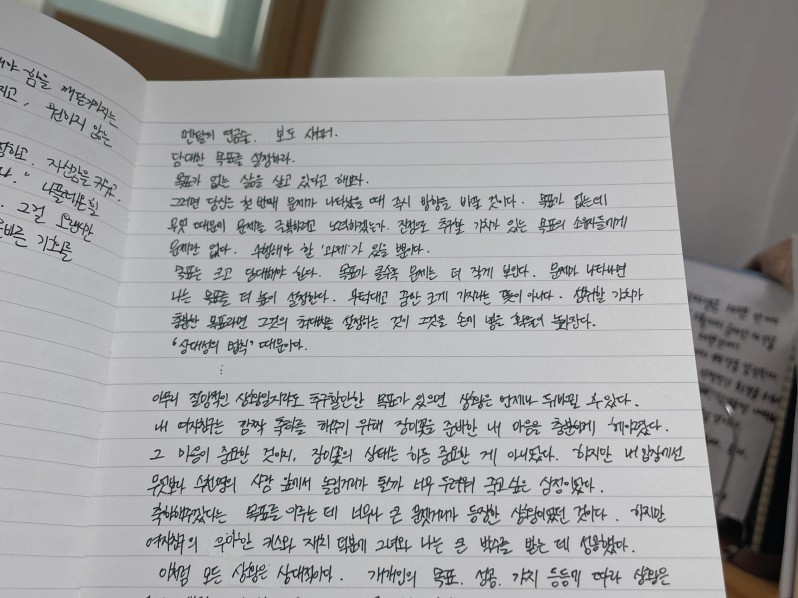 해야 함을 깨닫기까지는
지고, 원하지 않는
장하고, 자신감을 키우고
다." 나폴레온 힐
. 그걸 오랫동안
올바른 기회를
멘탈의 연금술. 보도 섀퍼.
담대한 목표를 설정하라.
목표가 없는 삶을 살고 있다고 해보자.
그러면 당신은 첫 번째 문제가 나타났을 때 즉시 방향을 바꿀 것이다. 목표가 없는데
무엇 때문에 문제를 극복하려고 노력하겠는가. 진정으로 추구할 가치가 있는 목표의 소유자들에게
문제란 없다. 수행해야 할 '과제'가 있을 뿐이다.
목표는 크고 담대해야 한다. 목표가 클수록 문제는 더 작게 보인다. 문제가 나타나면
나는 목표를 더 높이 설정한다. 무턱대고 꿈만 크게 가지라는 뜻이 아니다. 성취할 가치가
충분한 목표라면 그것의 최대치를 설정하는 것이 그것을 손에 넣을 확률이 높아진다.
"상대성의 법칙" 때문이다.
⋮
아무리 절망적인 상황일지라도 추구할만한 목표가 있으면 상황은 언제나 뒤바뀔 수 있다.
내 여자친구는 깜짝 파티를 해주기 위해 장미꽃을 준비한 내 마음을 충분하게 헤아렸다.
그 마음이 중요한 것이지, 장미꽃의 상태는 하등 중요한 게 아니었다. 하지만 내 입장에선
무엇보다 수천명의 사람 앞에서 놀림거리가 될까 너무 두려워 죽고 싶은 심정이었다.
축하해주겠다는 목표를 이루는 데 너무나 큰 문젯거리가 등장한 상황이었던 것이다. 하지만
여자친구의 우아한 키스와 재치 덕분에 그녀와 나는 큰 박수를 받는 데 성공했다.
이처럼 모든 상황은 상대적이다. 개개인의 목표, 성공, 가치 등등에 따라 상황은